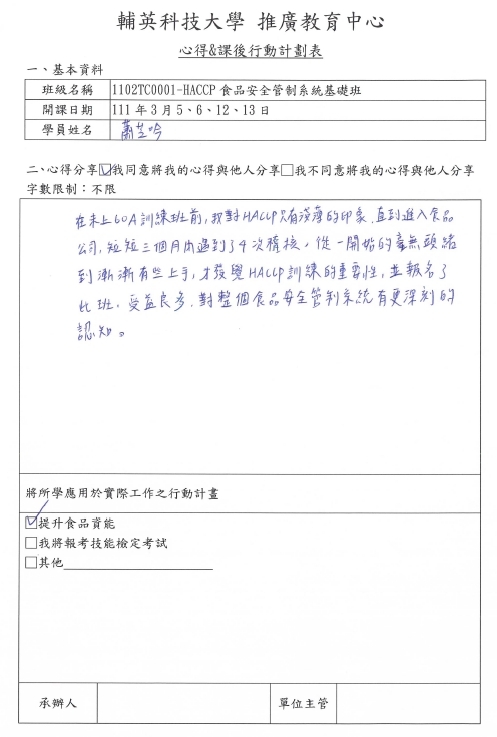 輔英科技大學 推廣教育中心
心得&課後行動計劃表
一、基本資料
班級名稱 1102TC0001-HACCP 食品安全管制系統基礎班
開課日期 111 年 3 月 5、6、12、13 日
學員姓名 蕭芝吟
二、心得分享☑我同意將我的心得與他人分享□我不同意將我的心得與他人分享
字數限制：不限
在未上60A訓練班前，我對HACCP只有淺薄的印象，直到進入食品
公司，短短三個月內遇到了4次稽核，從一開始的毫無頭緒
到漸漸有些上手，才發覺HACCP訓練的重要性，並報名了
此班，受益良多，對整個食品安全管制系統有更深刻的
認知。
將所學應用於實際工作之行動計畫
☑提升食品資能
□我將報考技能檢定考試
□其他
承辦人 單位主管